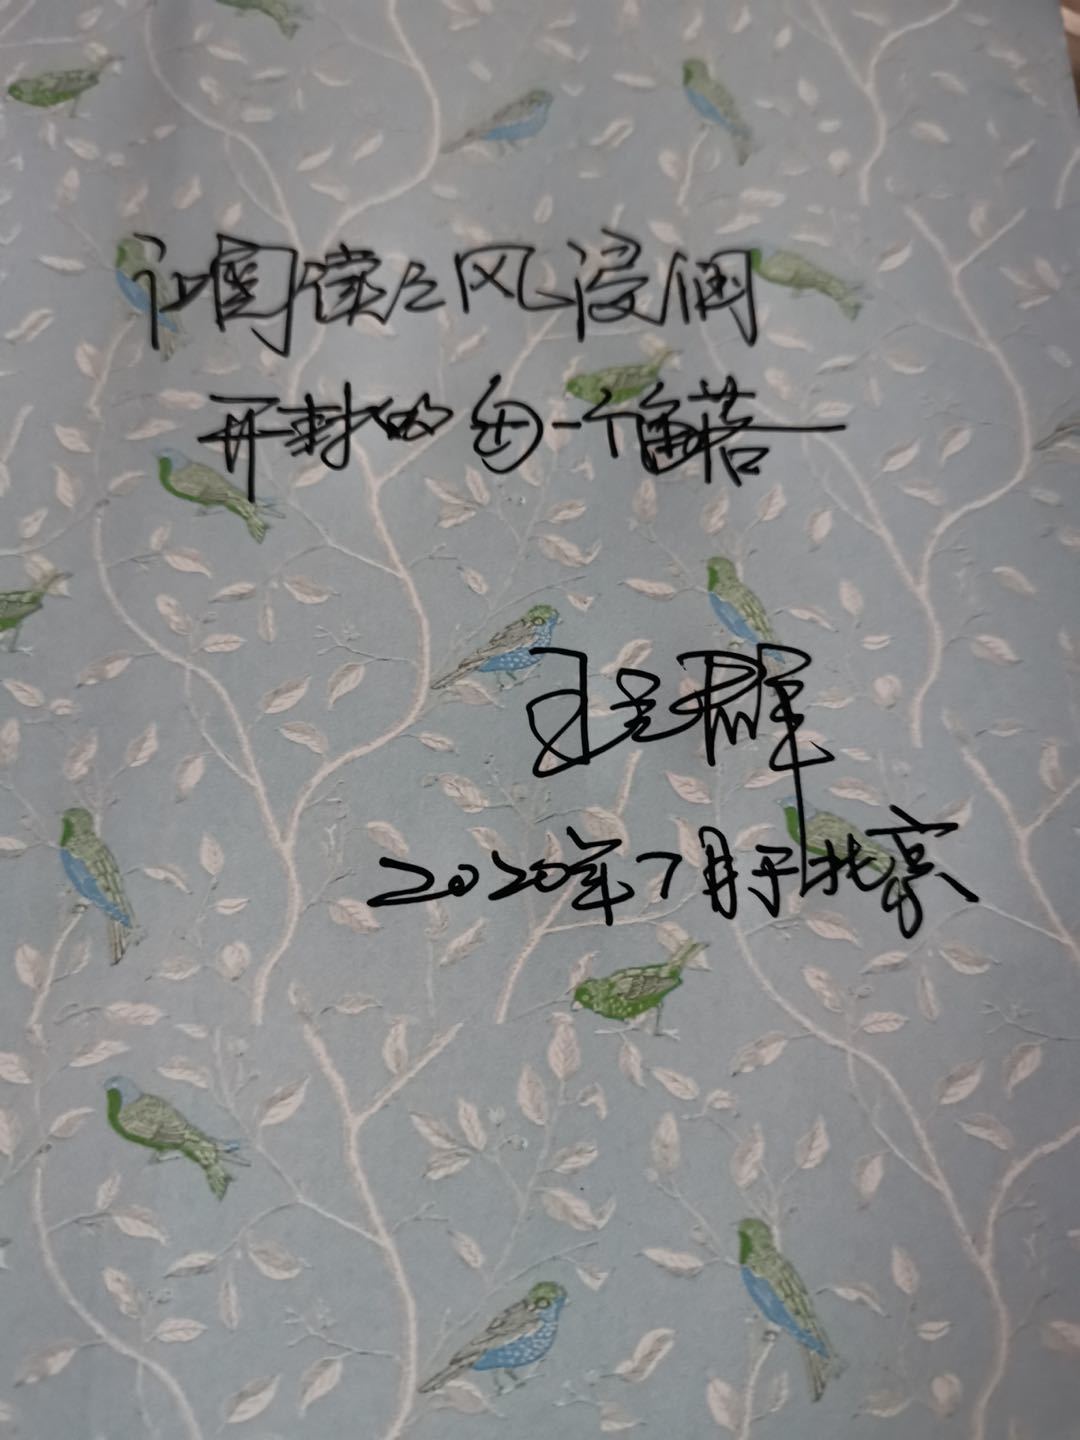 让阅读之风浸润
开封的每一个角落
王立群
2020年7月于北京